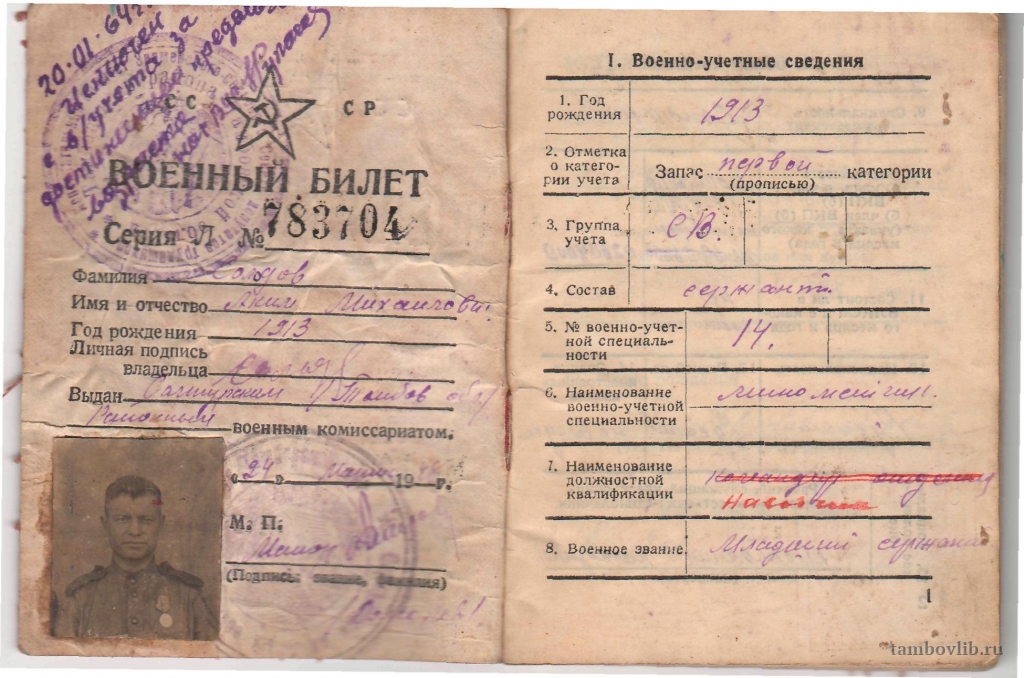 20.01.64г.
Исключен
с в/учета за
достижением предельн
возраста
С С С Р
ВОЕННЫЙ БИЛЕТ
Серия Л № 783704
Фамилия
Имя и отчество Аким Михайлович
Год рождения 1913
Личная подпись
владельца
Выдан г Тамбов обл
Районным военным комиссариатом.
«24» 19 г.
М. П.
Майор
(Подпись, звание, фамилия)
I. Военно-учетные сведения
1. Год
рождения 1913
2. Отметка
о катего-
рии учета Запас первой категории
(прописью)
3. Группа
учета СВ.
4. Состав сержант.
5. № военно-учет-
ной специаль-
ности 14.
6. Наименование
военно-учетной
специальности минометчик.
7. Наименование
должностной
квалификации командир отделения
Наводчик
8. Военное звание. Младший сержант
1
tambovlib.ru